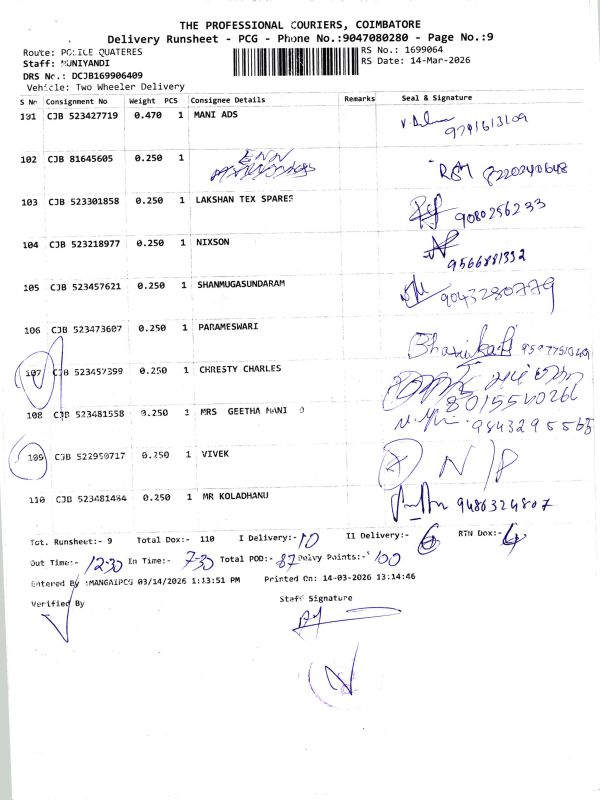 THE PROFESSIONAL COURIERS, COIMBATORE
Delivery Runsheet - PCG - Phone No.:9047080280 - Page No.:9
Route: POLICE QUATERES RS No.: 1699064
Staff: MUNIYANDI RS Date: 14-Mar-2026
DRS No.: DCJB169906409
Vehicle: Two Wheeler Delivery
S No Consignment No Weight PCS Consignee Details Remarks Seal & Signature
101 CJB 523427719 0.470 1 MANI ADS
9791613109
102 CJB 81645605 0.250 1 ENN
8220240648
103 CJB 523301858 0.250 1 LAKSHAN TEX SPARES 9080256233
104 CJB 523218977 0.250 1 NIXSON
9566881332
105 CJB 523457621 0.250 1 SHANMUGASUNDARAM 9043280779
106 CJB 523473607 0.250 1 PARAMESWARI
107 CJB 523457399 0.250 1 CHRESTY CHARLES
8015540266
108 CJB 523481558 0.250 1 MRS GEETHA MANI 9843295565
109 CJB 522950717 0.250 1 VIVEK N/P
110 CJB 523481484 0.250 1 MR KOLADHANU 9486324807
Tot. Runsheet:- 9 Total Dox:- 110 I Delivery:- 10 II Delivery:- 6 RTN Dox:- 4
Out Time:- 12-30 In Time:- 7-30 Total POD:- 87 Delvy Points:- 100
Entered By :MANGAIPCG 03/14/2026 1:13:51 PM Printed On: 14-03-2026 13:14:46
Verified By Staff Signature